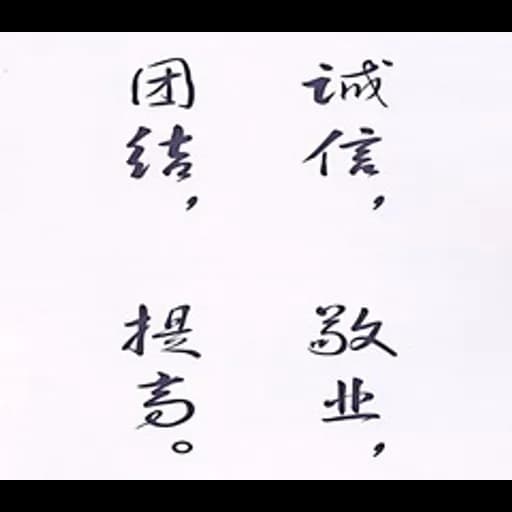 诚信，
敬业，
团结，
提高。